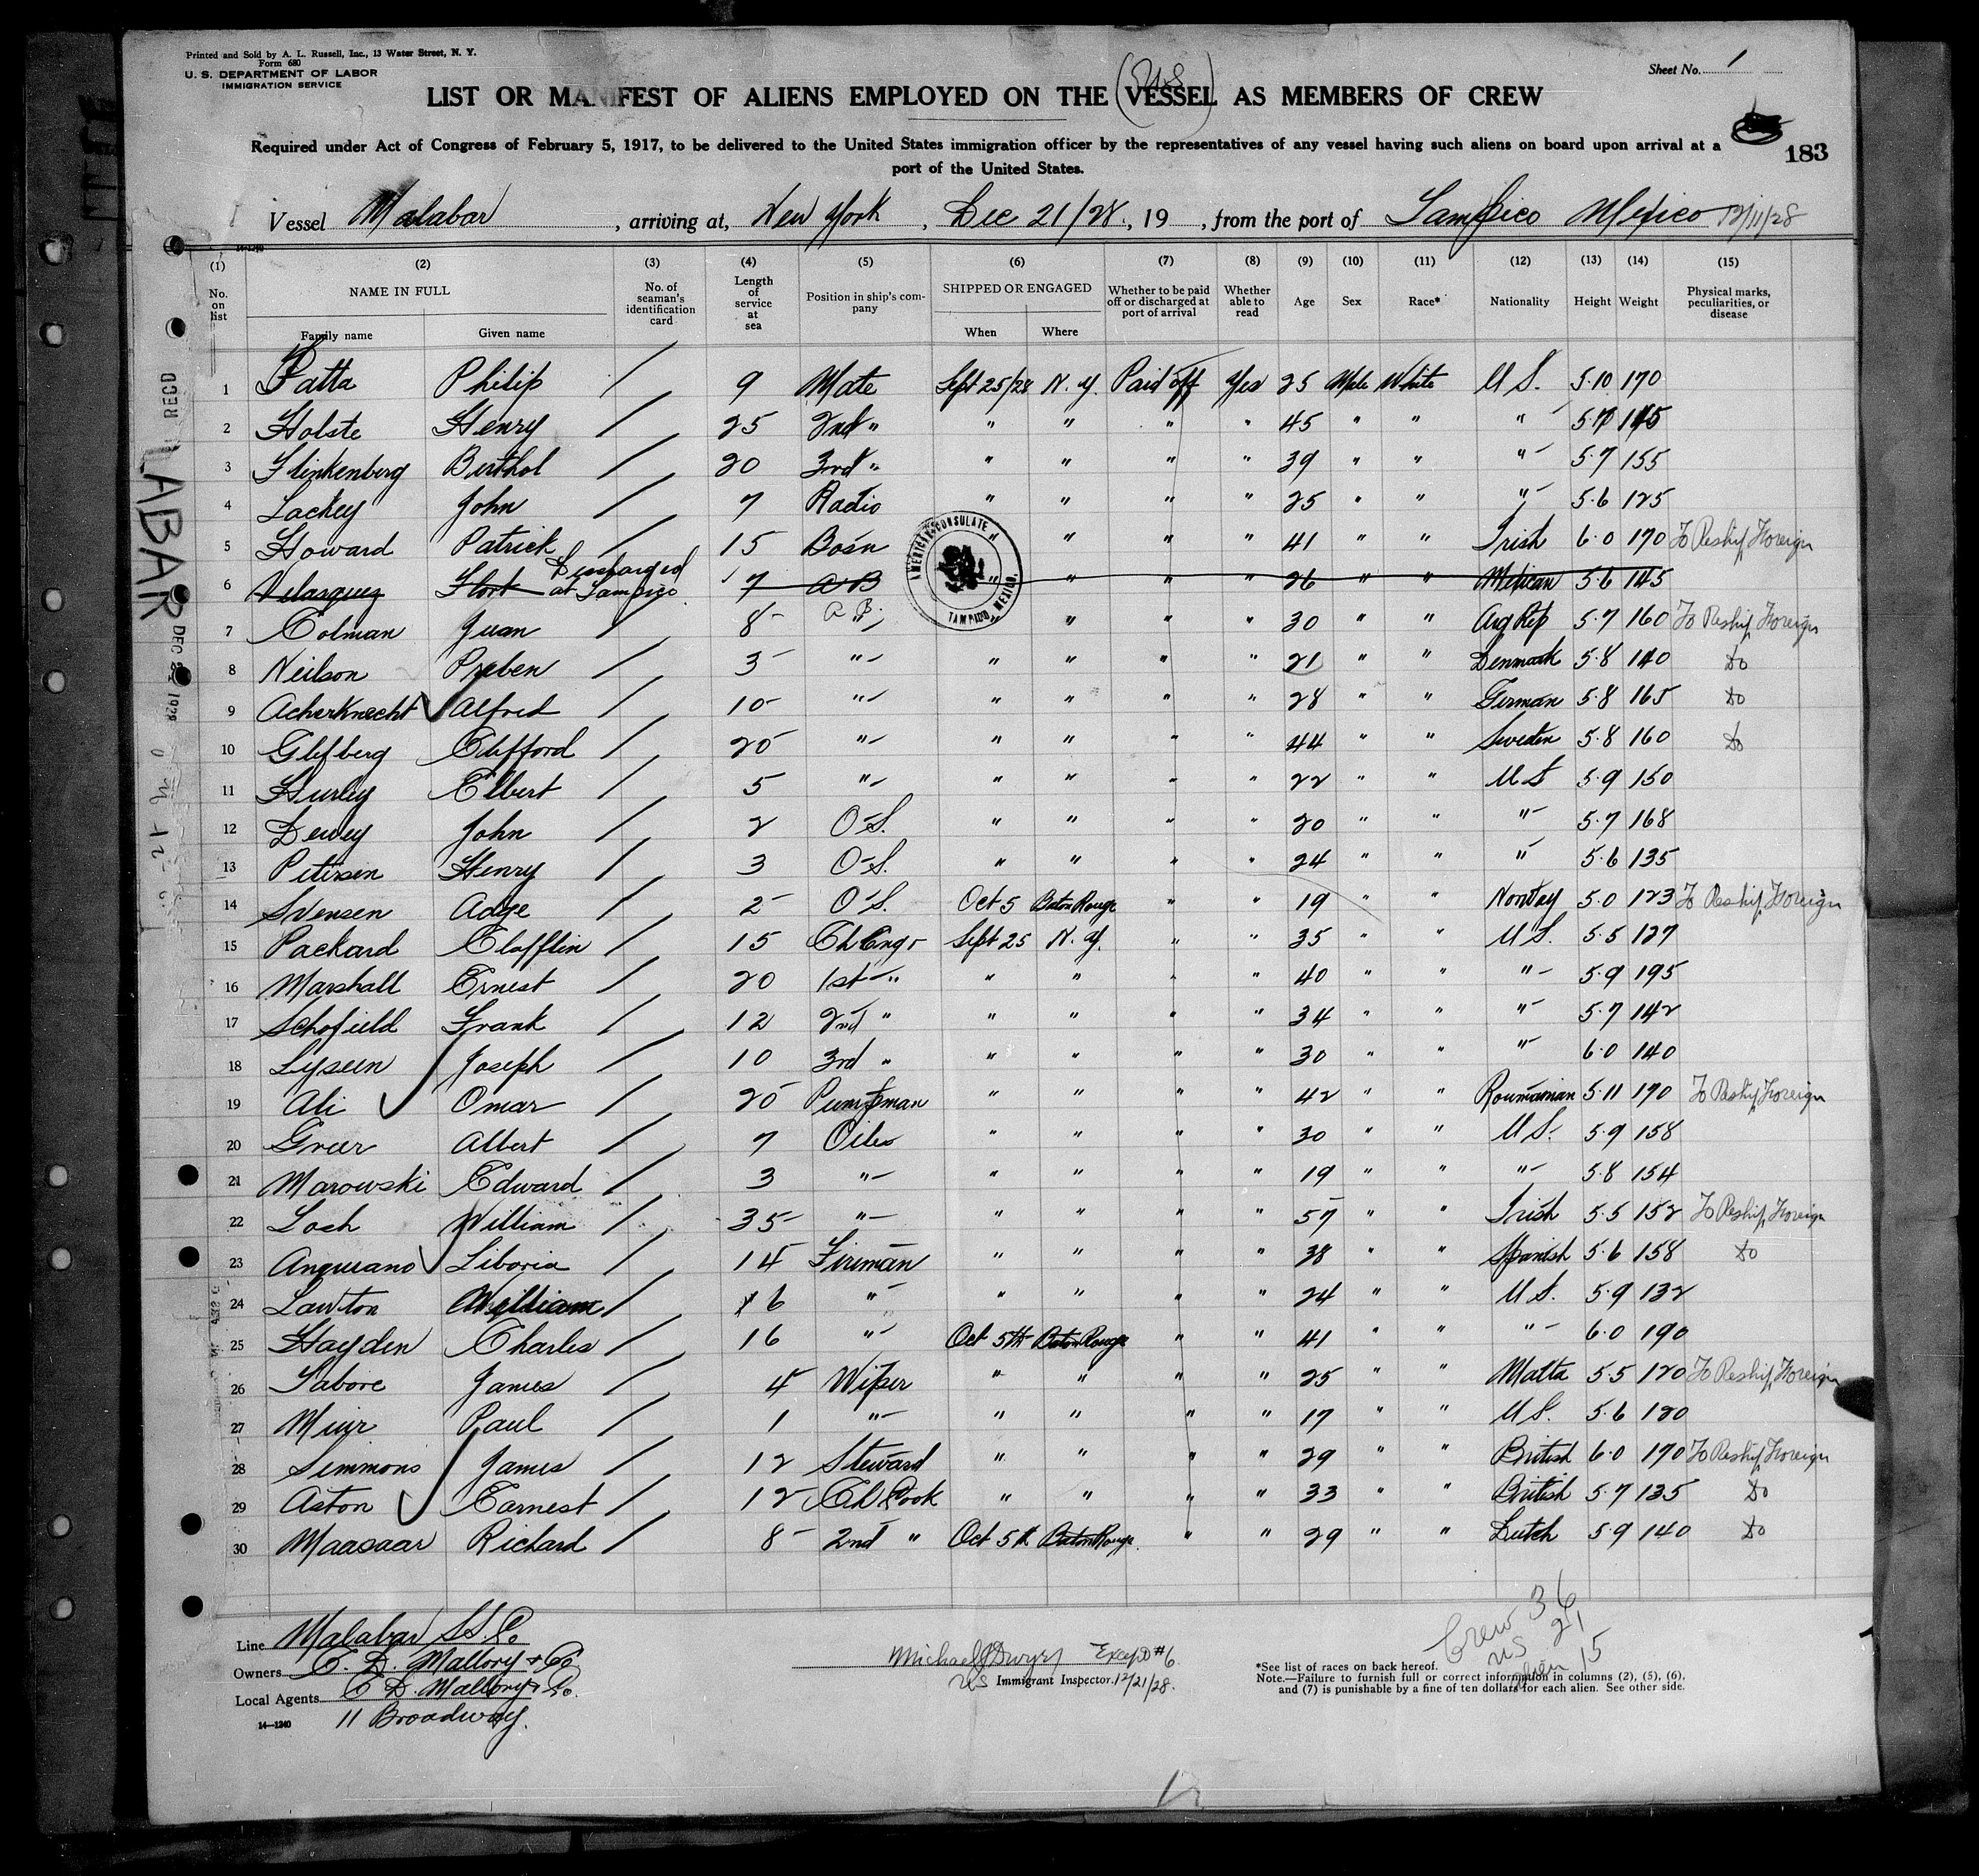 Printed and Sold by A. L. Russell, Inc., 13 Water Street, N. Y.
Form 680
U. S. DEPARTMENT OF LABOR
IMMIGRATION SERVICE
Sheet No. 1
(U.S)
LIST OR MANIFEST OF ALIENS EMPLOYED ON THE VESSEL AS MEMBERS OF CREW
183
Required under Act of Congress of February 5, 1917, to be delivered to the United States immigration officer by the representatives of any vessel having such aliens on board upon arrival at a
port of the United States.
Vessel Malabar, arriving at, New York, Dec 21/28, 19, from the port of Tampico Mexico 12/11/28
14-1240
(1) (2) (3) (4) (5) (6) (7) (8) (9) (10) (11) (12) (13) (14) (15)
No. on list NAME IN FULL Family name Given name No. of seaman's identification card Length of service at sea Position in ship's company SHIPPED OR ENGAGED When Where Whether to be paid off or discharged at port of arrival Whether able to read Age Sex Race* Nationality Height Weight Physical marks, peculiarities, or disease
1 Patta Philip / 9 Mate Sept 25/28 N. Y. Paid off Yes 25 Male White U S. 5.10 170
2 Holste Henry / 25 2nd " " " " " 45 " " " 145
3 Flinkenberg Berthol / 20 3rd " " " " " 39 " " " 5.7 155
4 Lackey John / 7 Radio " " " " 25 " " " 5.6 125
5 Howard Patrick / 15 Bosn " " " " 41 " " Irish 6.0 170 To Reship Foreign
6 Velasquez Discharged at Tampico 7 A B " " " " 26 " " Mexican 5.6 145
7 Colman Juan / 8 A B " " " 30 " " Arg Rep 5.7 160 To Reship Foreign
8 Neilson Preben / 3 " " " " " 21 " " Denmark 5.8 140 do
9 Acherknecht Alfred / 10 " " " " " 28 " " German 5.8 165 do
10 Glifberg Clifford / 20 " " " " " 44 " " Sweden 5.8 160 do
11 Hurley Elbert / 5 " " " " " 22 " " U S 5.9 150
12 Dewey John / 2 O S. " " " " 20 " " " 5.7 168
13 Petersen Henry / 3 O S. " " " " 24 " " " 5.6 135
14 Svensen Aage / 2 O S. Oct 5 Baton Rouge " " 19 " " Norway 5.0 123 To Reship Foreign
15 Packard Clafflin / 15 Ch Engr Sept 25 N. Y. " " 35 " " U S. 5.5 127
16 Marshall Ernest / 20 1st " " " " " 40 " " " 5.9 195
17 Schofield Frank / 12 2nd " " " " " 34 " " " 5.7 142
18 Lyseen Joseph / 10 3rd " " " " " 30 " " " 6.0 140
19 Ali Omar / 20 Pumpman " " " " 42 " " Roumanian 5.11 170 To Reship Foreign
20 Greer Albert / 7 Oiler " " " " 30 " " U S. 5.9 158
21 Marowski Edward / 3 " " " " " 19 " " " 5.8 154
22 Loch William / 35 " " " " " 57 " " Irish 5.5 152 To Reship Foreign
23 Anguiano Liboria / 14 Fireman " " " " 38 " " Spanish 5.6 158 do
24 Lawton William / 6 " " " " " 24 " " U S. 5.9 132
25 Hayden Charles / 16 " Oct 5th Baton Rouge " " 41 " " " 6.0 190
26 Sabore James / 4 Wiper " " " " 25 " " Malta 5.5 120 To Reship Foreign
27 Muir Paul / 1 " " " " " 17 " " U S. 5.6 120
28 Simmons James / 12 Steward " " " " 29 " " British 6.0 170 To Reship Foreign
29 Aston Earnest / 12 Ch Cook " " " " 33 " " British 5.7 135 do
30 Maasaar Richard / 8 2nd " Oct 5th Baton Rouge " " 29 " " Dutch 5.9 140 do
AMERICAN CONSULATE
TAMPICO, MEXICO
LABAR
RECD
DEC 1928
Line Malabar S.S. Co
Owners C. D. Mallory & Co
Local Agents C D. Mallory & Co.
11 Broadway.
14—1240
Michael J Dwyer Except #6
US Immigrant Inspector. 12/21/28.
Crew 36
US 21
alien 15
*See list of races on back hereof.
Note.—Failure to furnish full or correct information in columns (2), (5), (6),
and (7) is punishable by a fine of ten dollars for each alien. See other side.